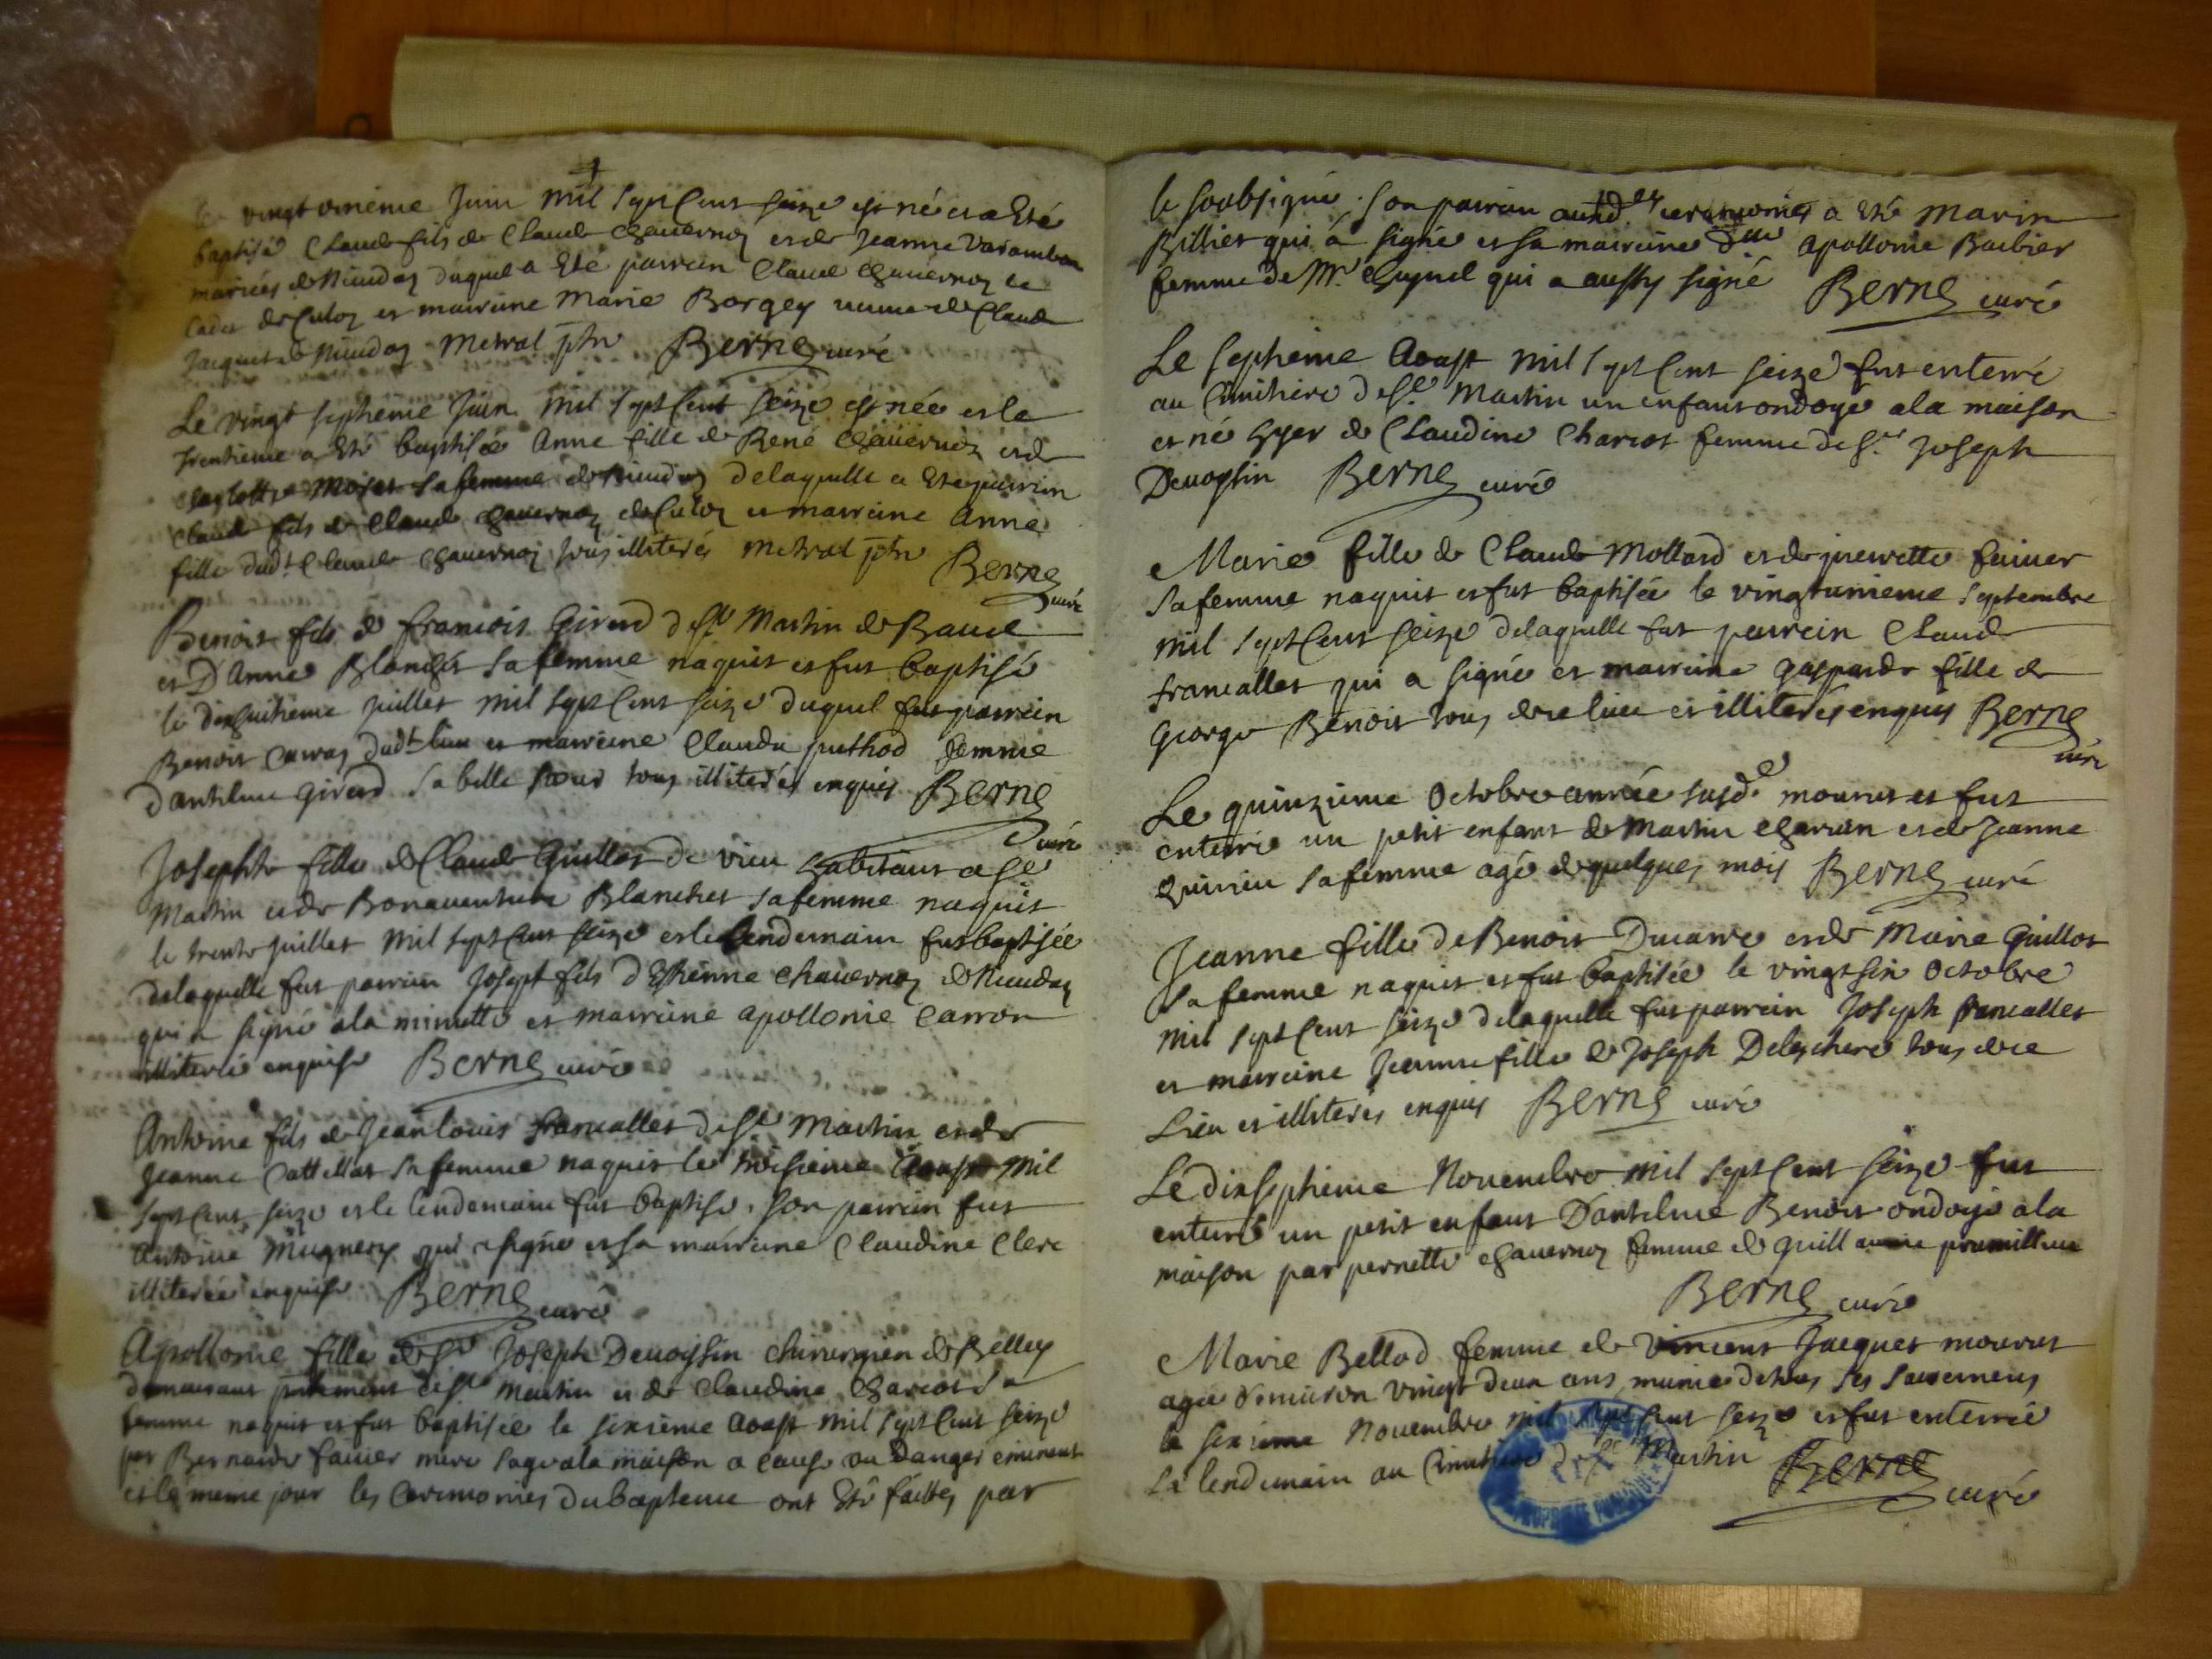 le vingt onzième Juin mil sept cent seize est né et a Eté
baptisé Claude fils de Claude Chavernoz et de Jeanne Varambon
mariés de Nuudoz duquel a Eté parrein Claude Chavernoz le
Cadet de Culoz et marreine Marie Borgey veuve de Claude
Jacquet de Nuudoz Metral ptre Berne curé
Le vingt septieme Juin mil sept cent seize est née et le
trentieme a Eté baptisée Anne fille de René Chavernoz et de
sa femme de delaquelle a Eté parrein
Claude fils de Claude Chavernoz de Culoz et marreine Anne
fille dudt Claude Chavernoz tous illiterés Metral ptre Berne
curé
Benoit fils de francois Girerd de St Martin de Bavel
et D'Anne Blanchet sa femme naquit et fut baptisé
le dixhuitieme juillet mil sept cent seize duquel fut parrein
Benoit dudt lieu et marreine Claudu puthod femme
d'antelme Girerd sa belle soeur tous illiterés enquis Berne
curé
Josephte fille de Claude Guillot de vieu habitant a St
Martin et de Bonaventure Blanchet sa femme naquit
le trente juillet mil sept cent seize et le lendemain fut baptisée
delaquelle fut parrein Joseph fils d'Estienne Chavernoz de Nuudoz
qui a signé a la minutte et marreine apollonie Carron
illiterée enquise Berne curé
Antoine fils de Jean louis francallet de St Martin et de
Jeanne Cattellat sa femme naquit le troisieme Aoust mil
sept cent seize et le lendemain fut baptisé, son parrein fut
Antoine Mugnery qui a signé et sa marreine Claudine Clerc
illiterée enquise Berne curé
Apollonie fille de Sr Joseph Devoysin chirurgien de Belley
demeurant pntement a St Martin et de Claudine Charcot sa
femme naquit et fut baptisée le sixieme Aoust mil sept cent seize
par Bernarde favier mere sage a la maison a cause du Danger eminent
et le meme jour les Ceremonies du bapteme ont Eté faittes par
le soubsigné, son parrein auxd.es ceremonies a Eté Marin
Billiet qui a signé et sa marreine Dlle apollonie Barbier
femme de Mr. Cuynel qui a aussy signé Berne curé
Le septieme Aoust mil sept cent seize fut enterré
au Cimitiere de St. Martin un enfant ondoyé a la maison
et né hyer de Claudine Charcot femme de Sr. Joseph
Devoysin Berne curé
Marie fille de Claude Mollard et de favier
sa femme naquit et fut baptisée le vingtunieme septembre
mil sept cent seize delaquelle fut parrein Claude
francallet qui a signé et marreine gasparde fille de
George Benoit tous de ce lieu et illiterés enquis Berne
curé
Le quinzieme Octobre année susd.e mourut et fut
enterré un petit enfant de Martin Charvin et de Jeanne
Quinieu sa femme agé de quelques mois Berne curé
Jeanne fille de Benoit Ducarre et de Marie Guillot
sa femme naquit et fut baptisée le vingtsix Octobre
mil sept cent seize delaquelle fut parrein Joseph francallet
et marreine Jeanne fille de Joseph Deleschere tous de ce
Lieu et illiterés enquis Berne curé
Le dixseptieme Novembre mil sept cent seize fut
enterré un petit enfant D'antelme Benoit ondoyé a la
maison par pernette Chavernoz femme de Guillaume
Berne curé
Marie Bellod femme de Vincent Jacquet mourut
agée d'environ vingt deux ans munie de tous ses sacremens
le sixieme Novembre mil sept cent seize et fut enterrée
Le lendemain au Cimitiere de St Martin Berne
curé